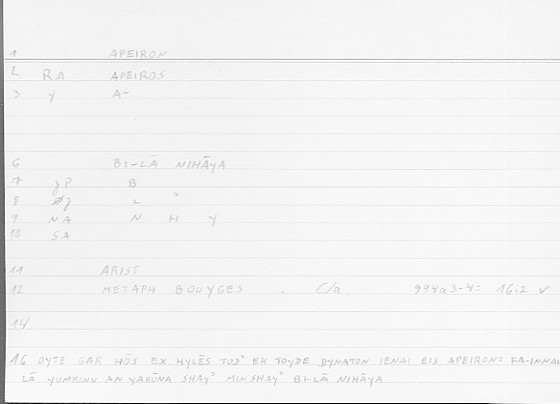 1 APEIRON
2 RA APEIROS
3 Y A-
6 BI-LĀ NIHĀYA
7 gP B
8 L ʾ
9 NA N H Y
10 SA
11 ARIST
12 METAPH BOUYGES . C/a 994a3-4= 16:2 v
14
16 OYTE GAR HŌS EX HYLĒS TODʾ EK TOYDE DYNATON IENAI EIS APEIRON: FA-INNAH
LĀ YUMKINU AN YAKŪNA SHAYʾ MIN SHAYʾ BI-LĀ NIHĀYA